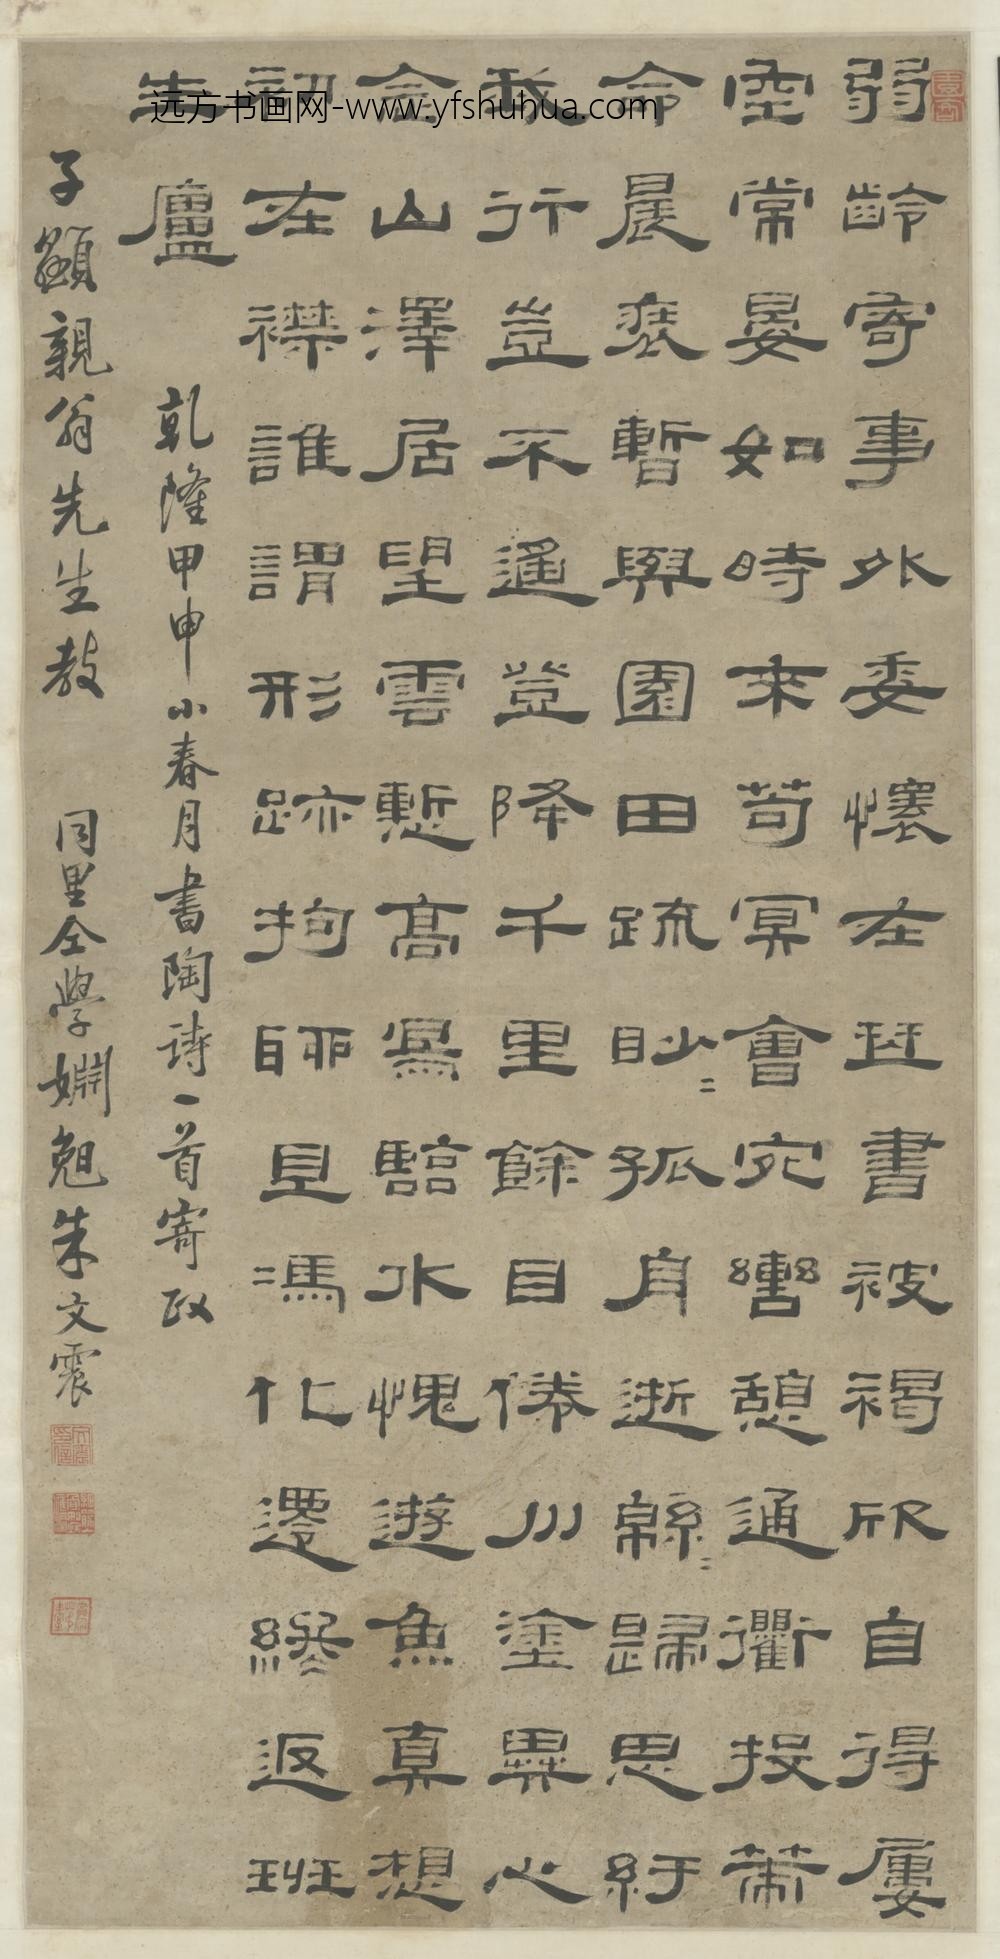 弱齡寄事外委懷在琴書被褐欣自得屢
空常晏如時來苟冥會宛轡憩通衢投策
命晨裝暫與園田疏眇〻孤舟逝緜〻歸思紆
我行豈不遙登降千里餘目倦川塗異心
念山澤居望雲慙高鳥臨水愧遊魚真想
初在襟誰謂形跡拘聊且馮化遷終返班
生廬
乾隆甲申小春月書陶詩一首寄政
子親翁先生教
同里仝學婣朱文震
远方书画网-www.yfshuhua.com